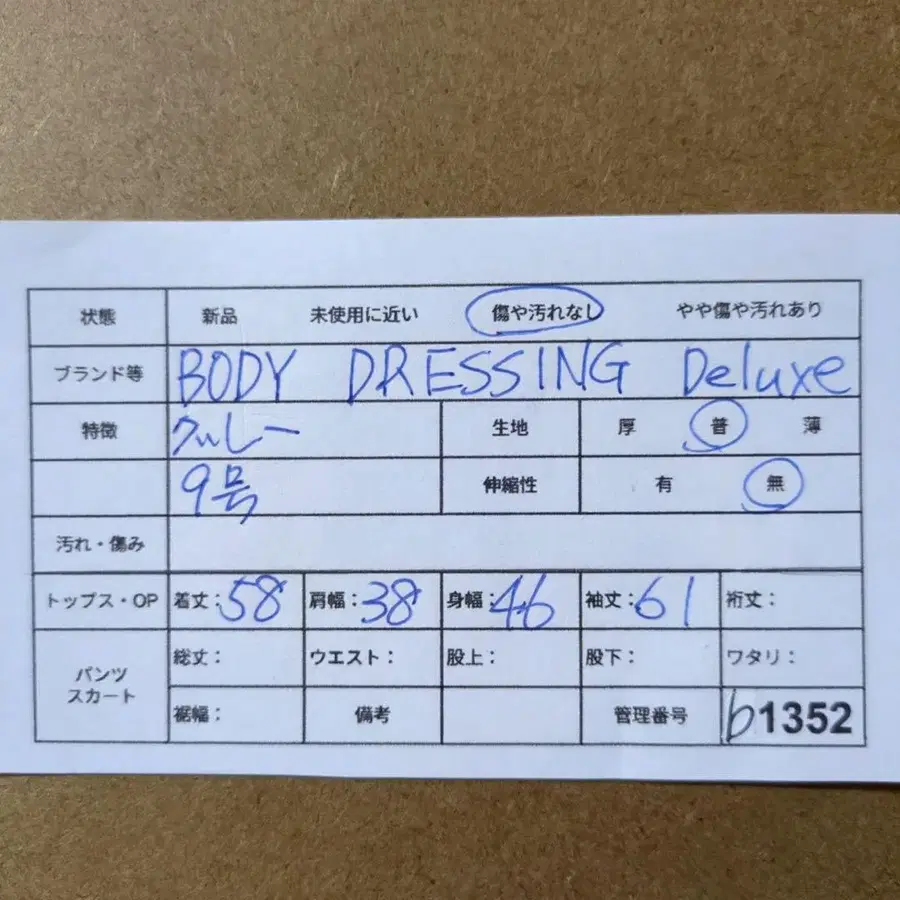 状態 新品 未使用に近い 傷や汚れなし やや傷や汚れあり
ブランド等 BODY DRESSING Deluxe
特徴 グレー 生地 厚 普 薄
9号 伸縮性 有 無
汚れ・傷み
トップス・OP 着丈:58 肩幅:38 身幅:46 袖丈:61 裄丈:
パンツ スカート 総丈: ウエスト: 股上: 股下: ワタリ:
裾幅: 備考 管理番号 b1352